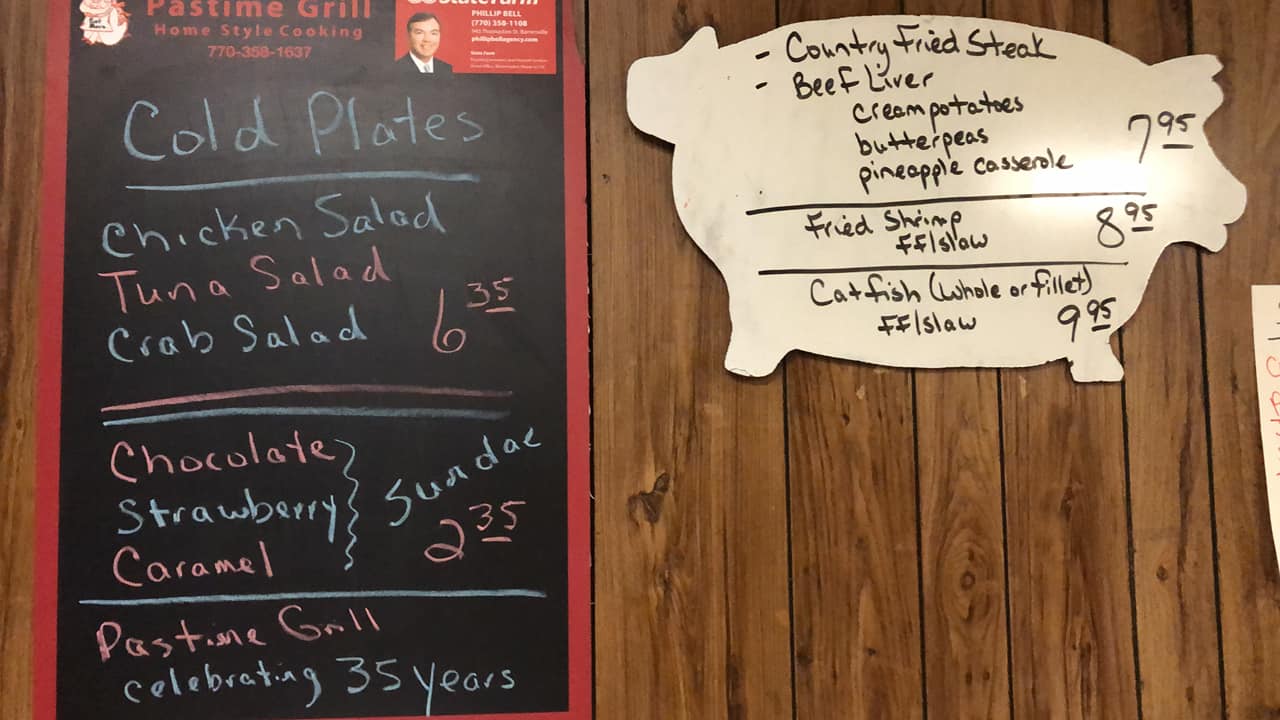 Pastime Grill
Home Style Cooking
770-358-1637
StateFarm
PHILLIP BELL
(770) 358-1108
phillipbellagency.com
State Farm
Cold Plates
Chicken Salad
Tuna Salad
Crab Salad
6 35
Chocolate
Strawberry
Caramel
Sundae
2 35
Pastime Grill
celebrating 35 years
- Country Fried Steak
- Beef Liver
creampotatoes
butterpeas
pineapple casserole
7 95
Fried Shrimp
FF/slaw
8 95
Catfish (whole or fillet)
FF/slaw
9 95